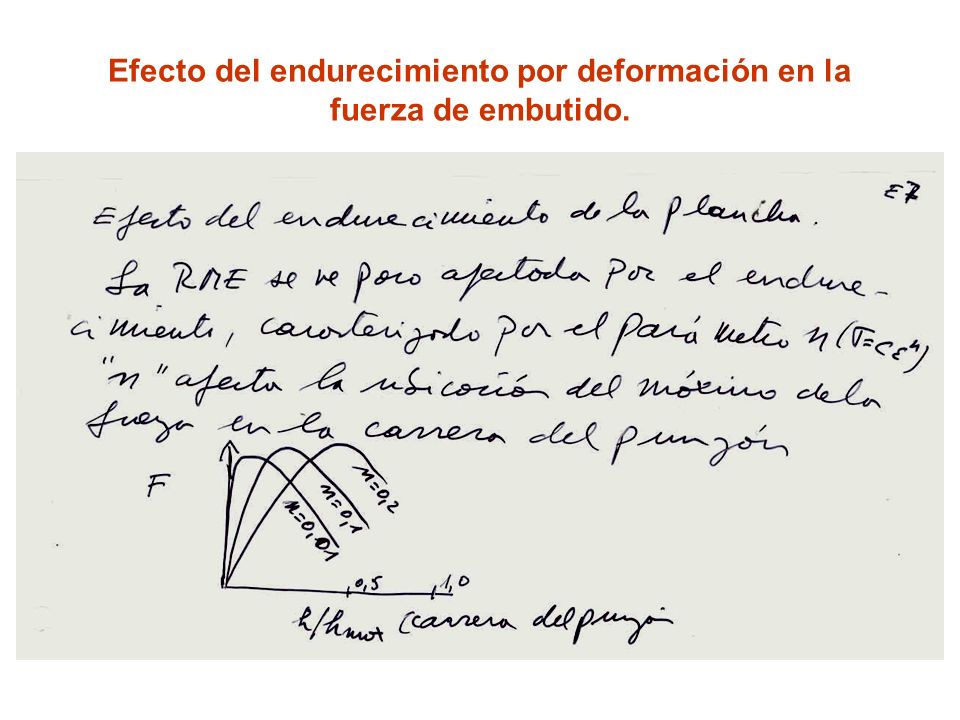 Efecto del endurecimiento por deformación en la
fuerza de embutido.
E7
Efecto del endurecimiento de la plancha.
La RME se ve poco afectada por el endure-
cimiento, caracterizado por el parámetro n (σ=cεⁿ)
"n" afecta la ubicación del máximo de la
fuerza en la carrera del punzón
F
n=0,01
n=0,1
n=0,2
0,5
1,0
h/hmax (carrera del punzón